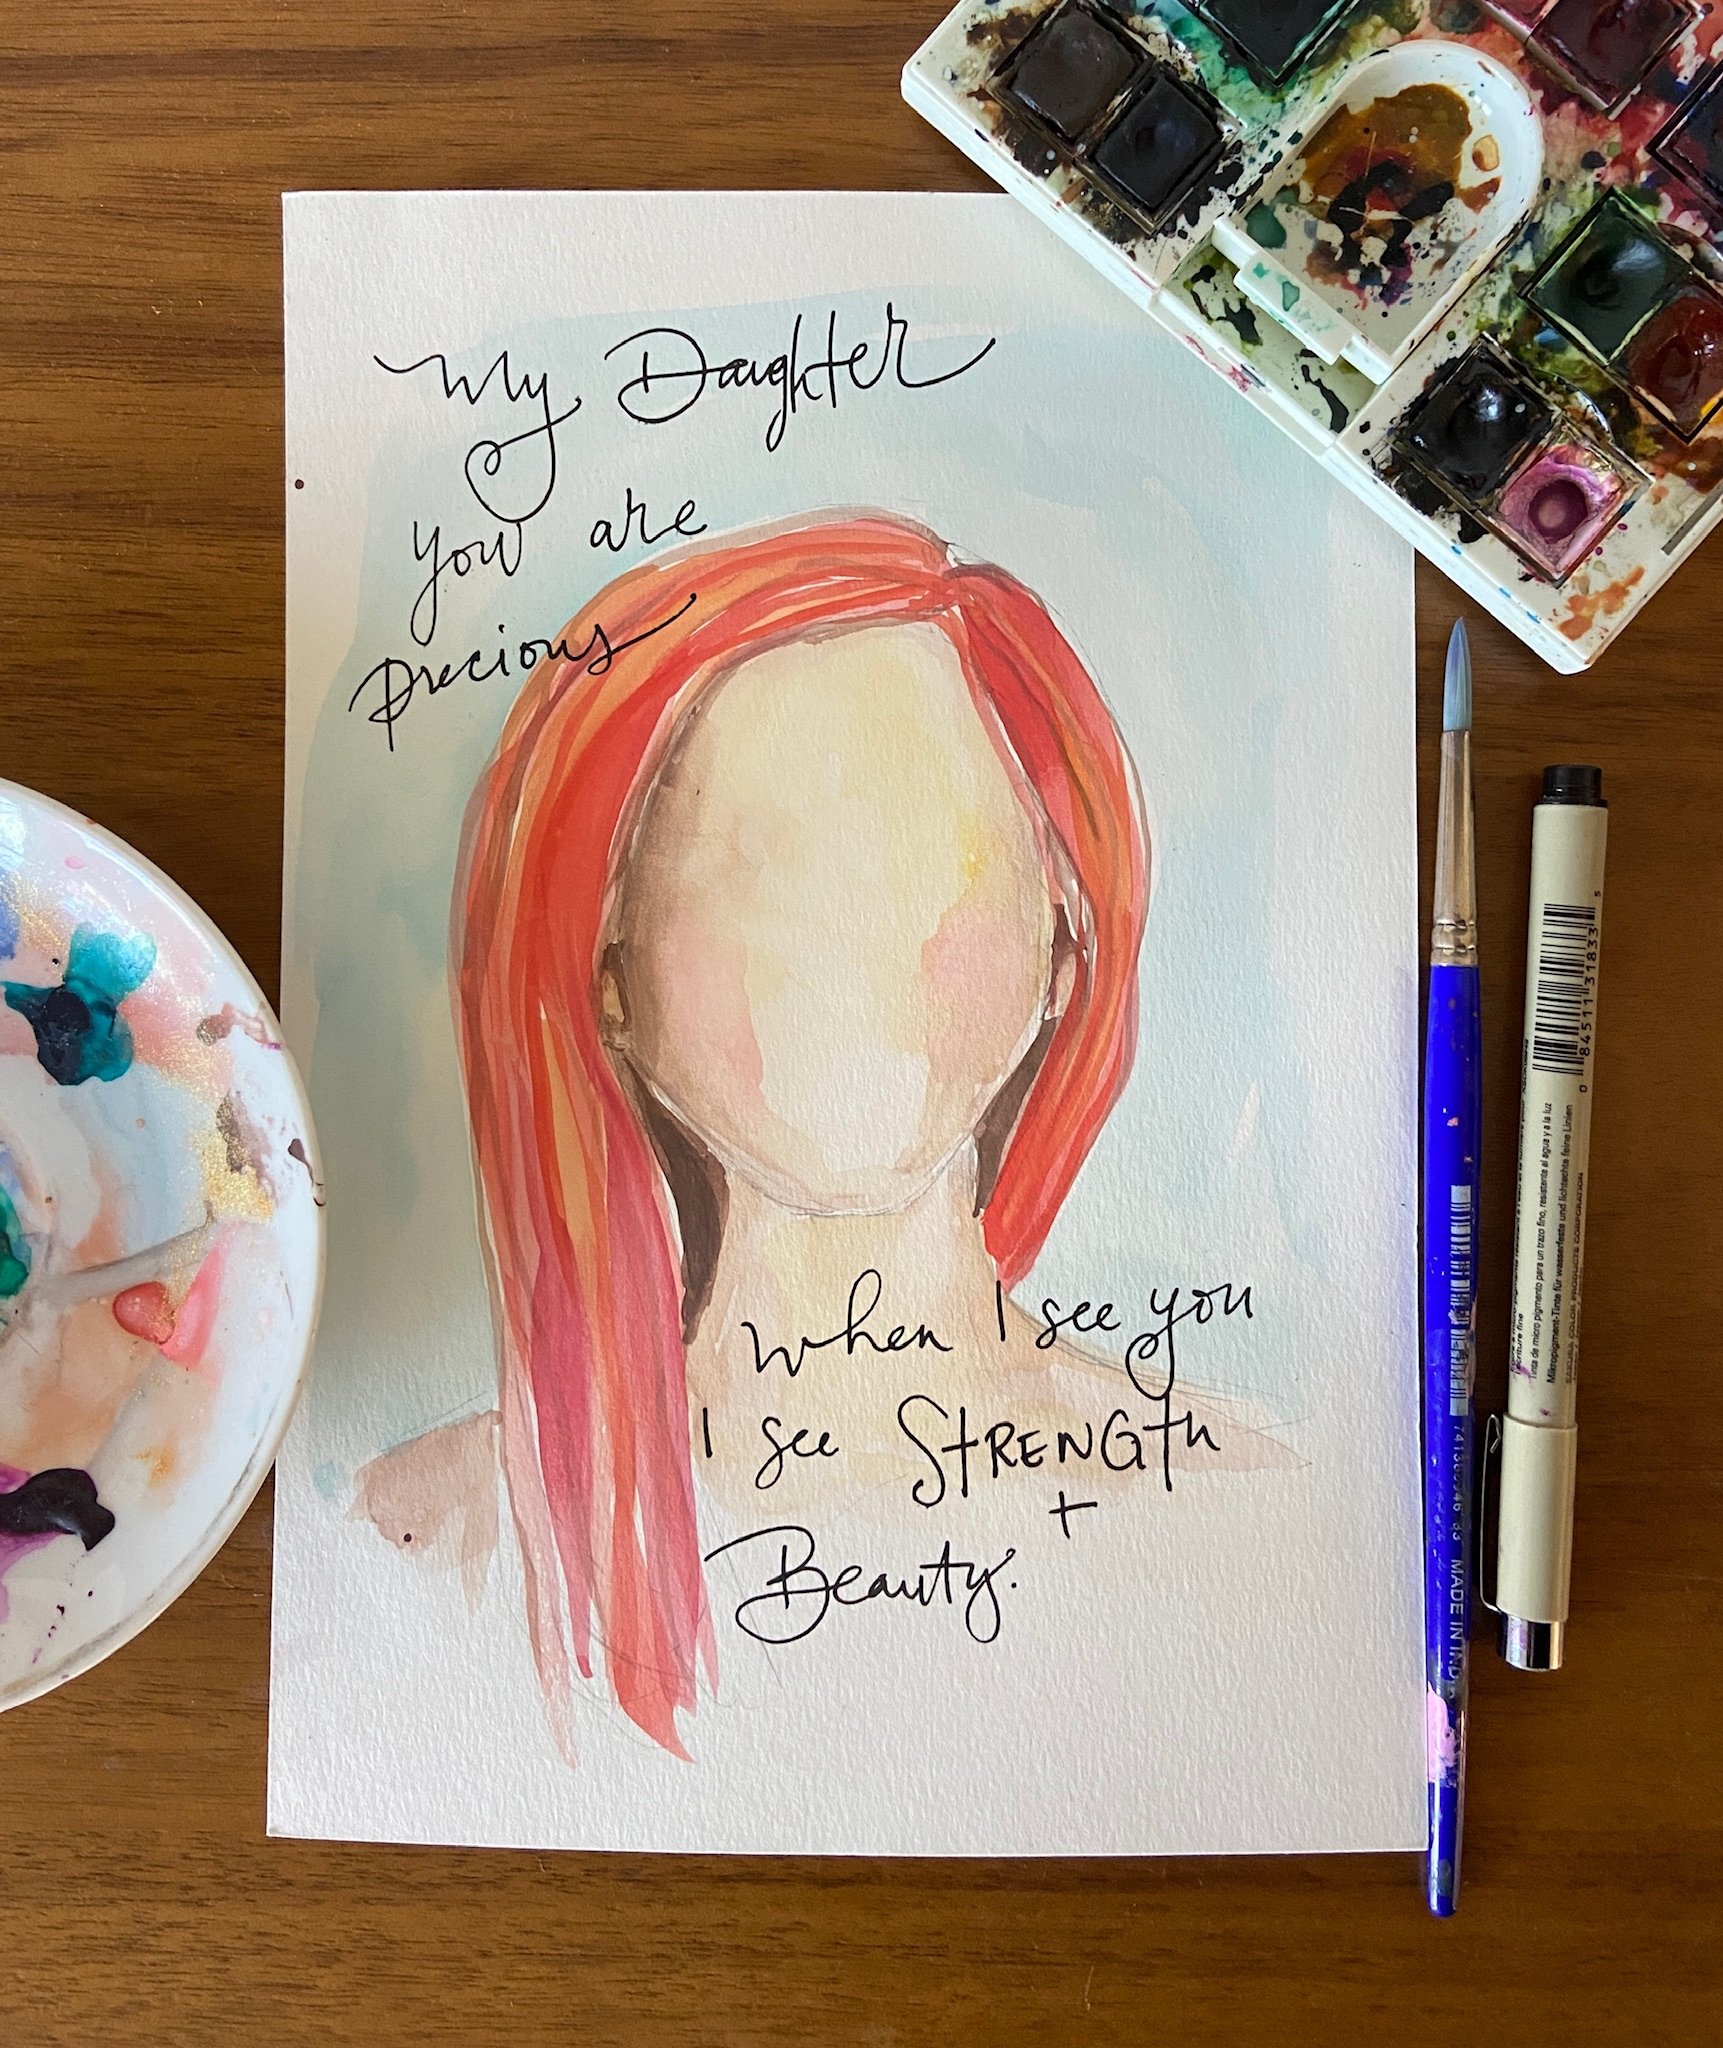 My Daughter
you are
Precious
When I see you
I see STRENGth
+
Beauty.
0 84511 31833 5
Tinta de micro pigmento para un trazo fino, resistente al agua y a la luz
Mikropigment-Tinte für wasserfeste und lichtechte feine Linien
SAKURA COLOR PRODUCTS CORPORATION
MADE IN IND